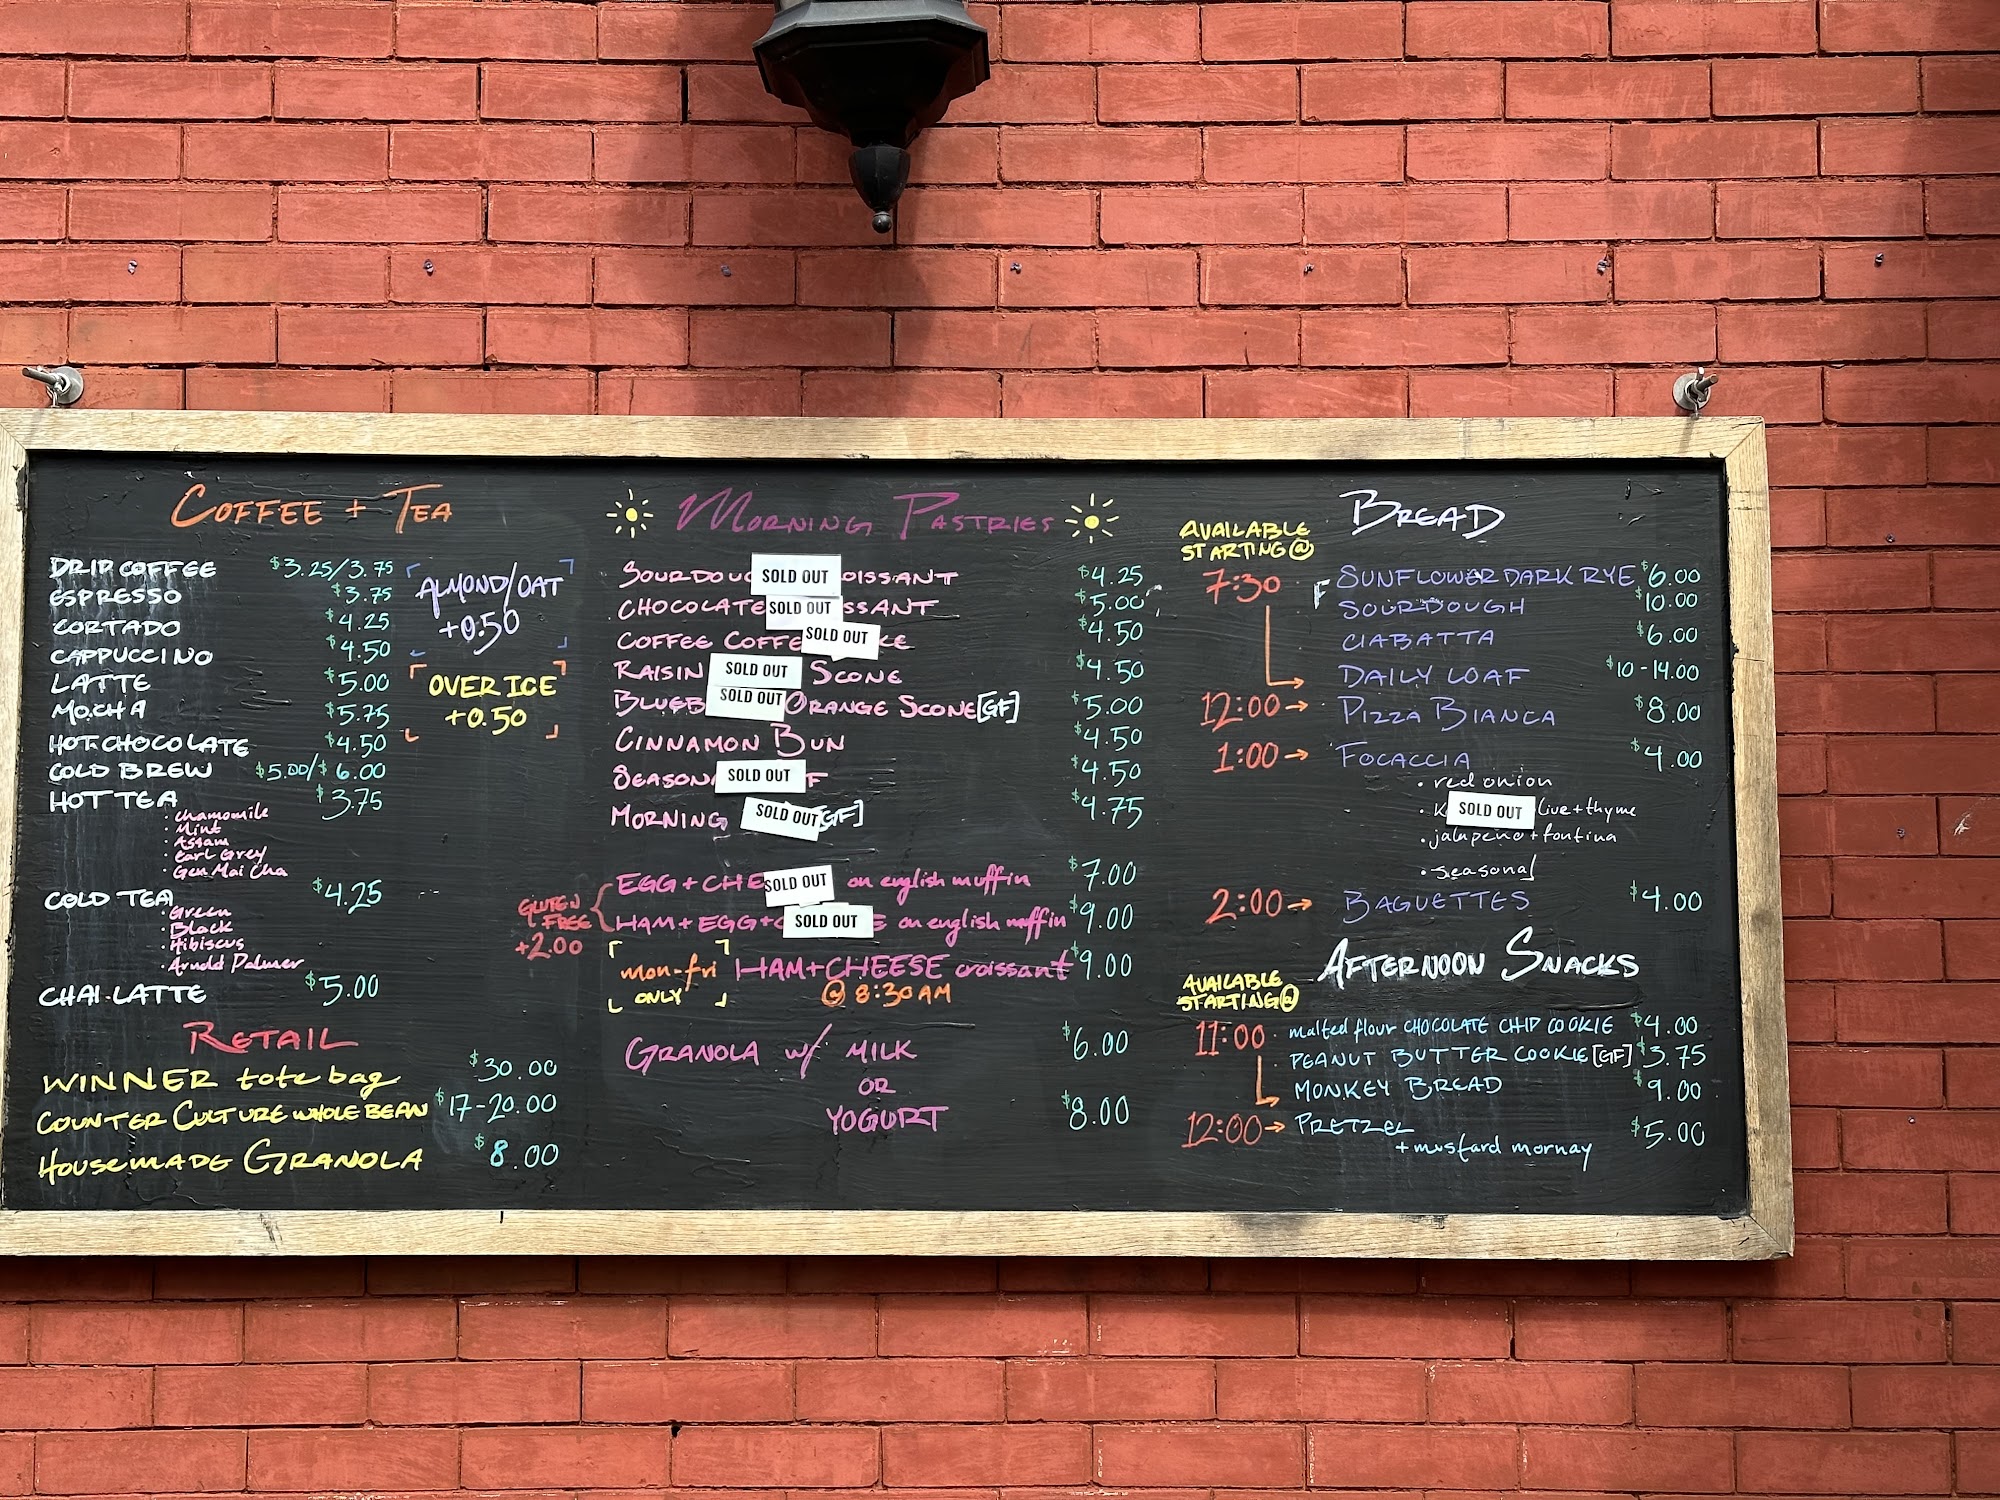 COFFEE + TEA
DRIP COFFEE $3.25/3.75
ESPRESSO $3.75
CORTADO $4.25
CAPPUCCINO $4.50
LATTE $5.00
MOCHA $5.75
HOT CHOCOLATE $4.50
COLD BREW $5.00/$6.00
HOT TEA $3.75
· chamomile
· Mint
· Assam
· Earl Grey
· Gen Mai Cha
COLD TEA $4.25
· Green
· Black
· Hibiscus
· Arnold Palmer
CHAI LATTE $5.00
ALMOND/OAT
+0.50
OVER ICE
+0.50
RETAIL
WINNER tote bag $30.00
COUNTER CULTURE WHOLE BEAN $17-20.00
HOUSEMADE GRANOLA $8.00
MORNING PASTRIES
SOURDOU SOLD OUT OISSANT $4.25
CHOCOLATE SOLD OUT SSANT $5.00
COFFEE COFFE SOLD OUT KE $4.50
RAISIN SOLD OUT SCONE $4.50
BLUEB SOLD OUT ORANGE SCONE [GF] $5.00
CINNAMON BUN $4.50
SEASONA SOLD OUT F $4.50
MORNING SOLD OUT GF] $4.75
GLUTEN
FREE
+2.00
EGG + CHE SOLD OUT on english muffin $7.00
HAM + EGG + C SOLD OUT E on english muffin $9.00
mon-fri
ONLY
HAM + CHEESE croissant $9.00
@ 8:30 AM
GRANOLA w/ MILK $6.00
OR
YOGURT $8.00
BREAD
AVAILABLE
STARTING @
7:30 SUNFLOWER DARK RYE $6.00
SOURDOUGH $10.00
CIABATTA $6.00
DAILY LOAF $10-14.00
12:00 → PIZZA BIANCA $8.00
1:00 → FOCACCIA $4.00
· red onion
· K SOLD OUT live + thyme
· jalapeno + fontina
· seasonal
2:00 → BAGUETTES $4.00
AFTERNOON SNACKS
AVAILABLE
STARTING @
11:00 malted flour CHOCOLATE CHIP COOKIE $4.00
PEANUT BUTTER COOKIE [GF] $3.75
MONKEY BREAD $9.00
12:00 → PRETZEL $5.00
+ mustard mornay